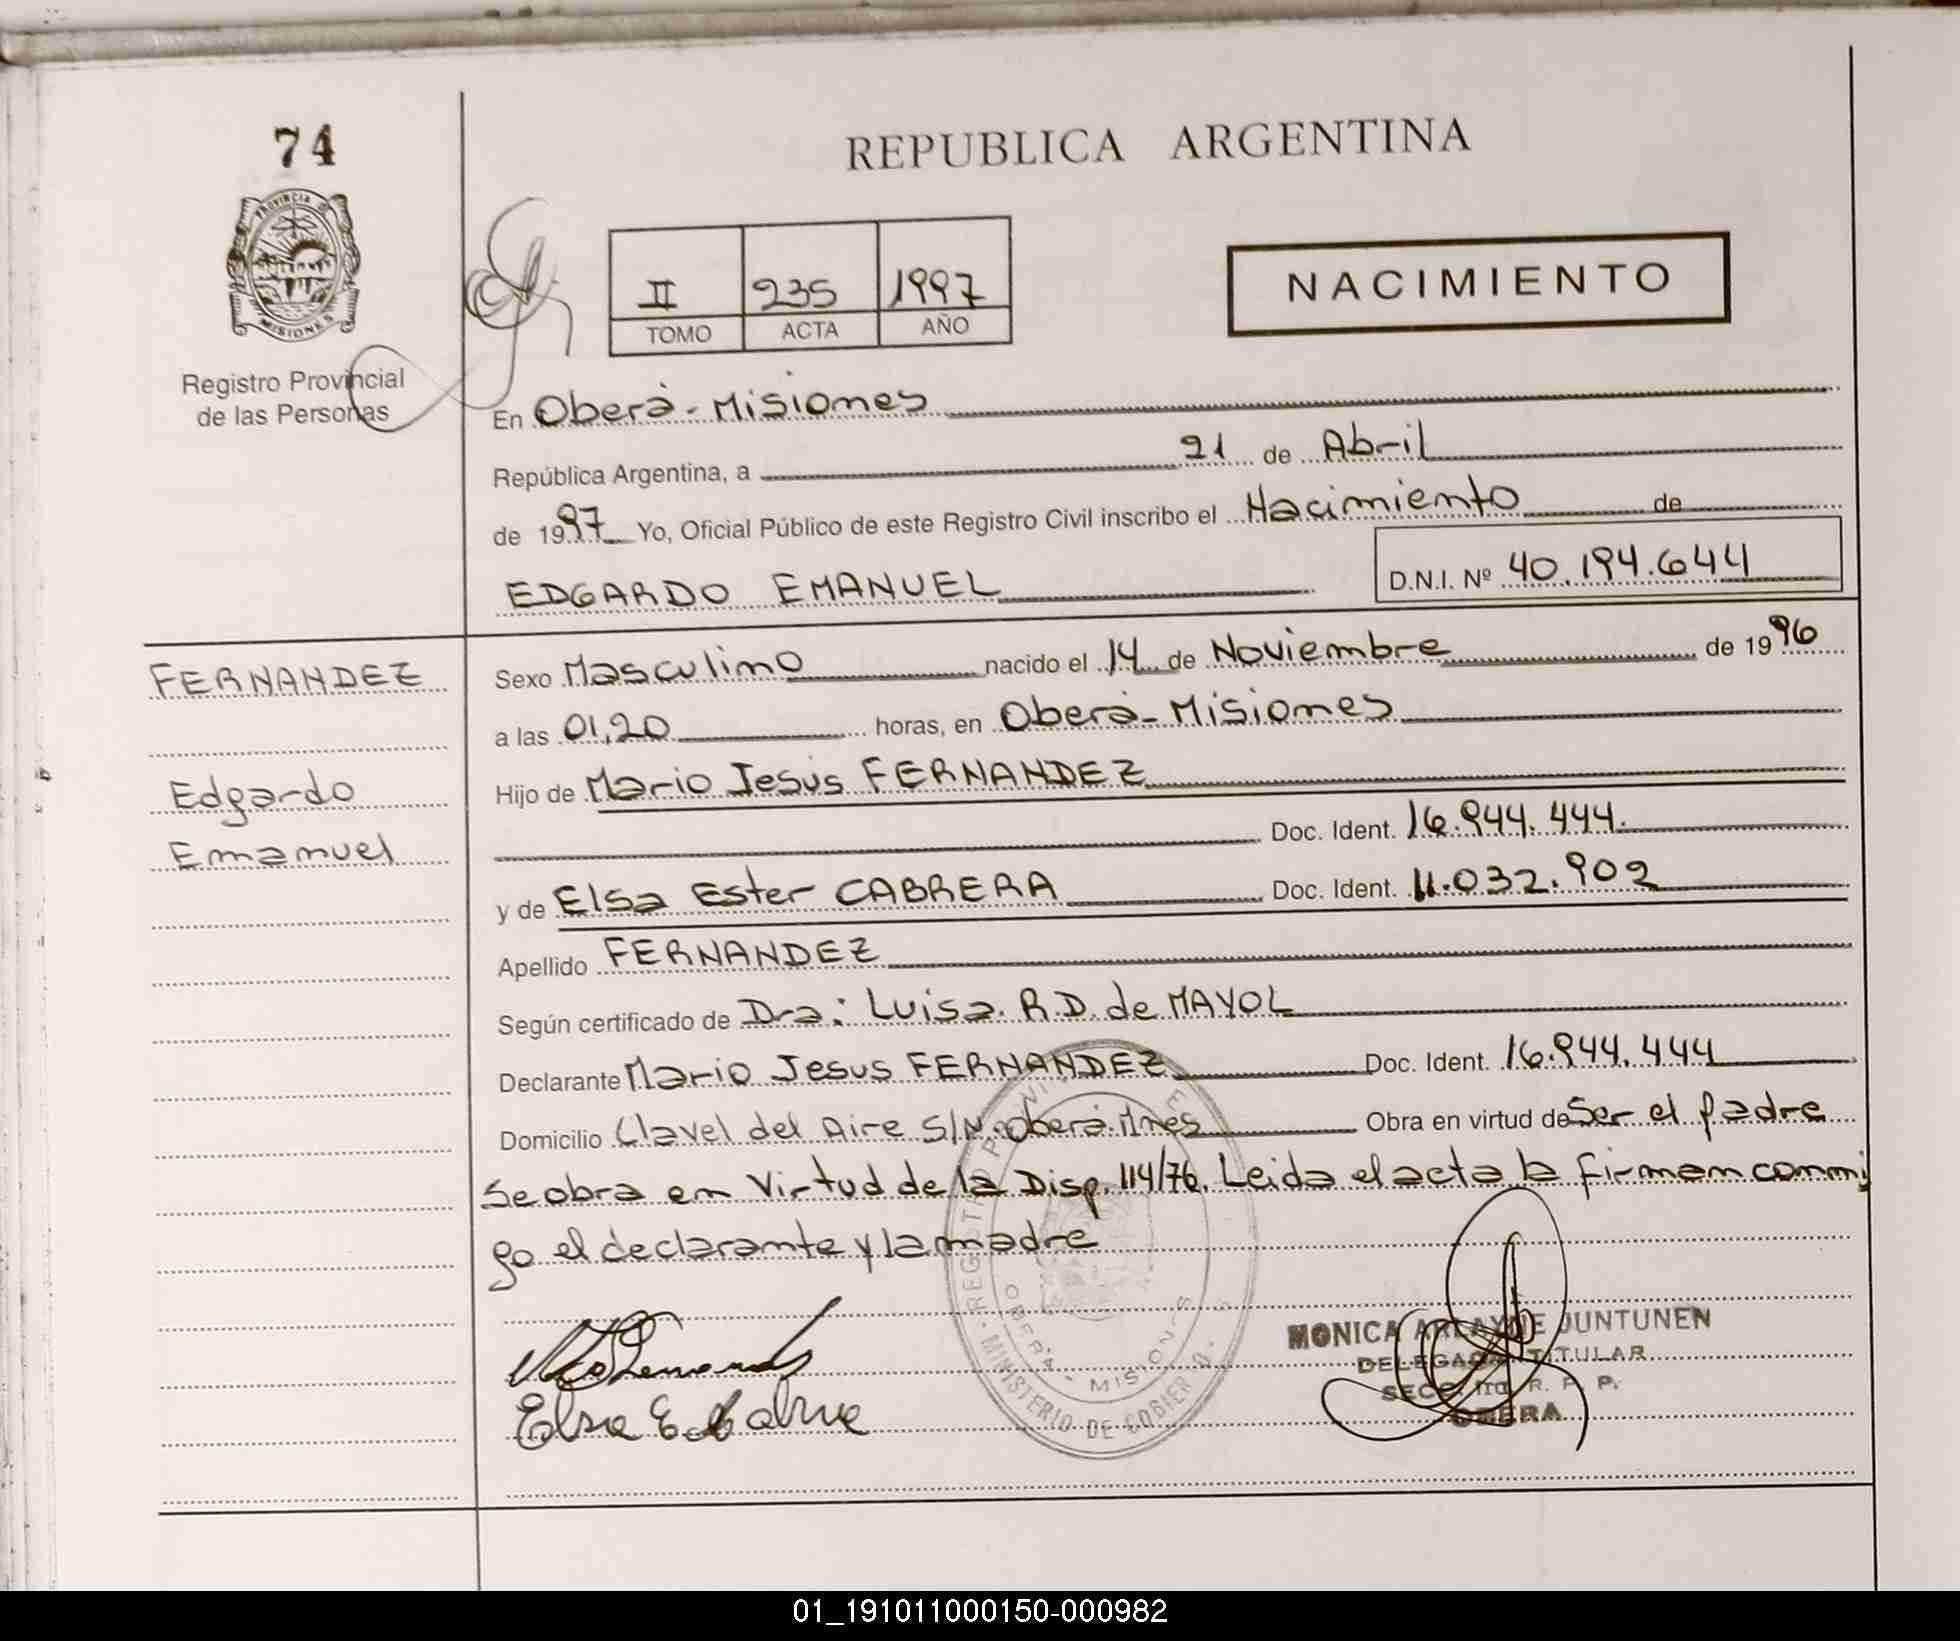 74
REPUBLICA ARGENTINA
PROVINCIA DE
MISIONES
Registro Provincial
de las Personas
II 235 1997
TOMO ACTA AÑO
NACIMIENTO
En Oberà - Misiones
República Argentina, a 21 de Abril
de 1997 Yo, Oficial Público de este Registro Civil inscribo el Nacimiento de
EDGARDO EMANUEL D.N.I. Nº 40.194.644
FERNANDEZ
Edgardo
Emanuel
Sexo Masculino nacido el 14 de Noviembre de 1996
a las 01,20 horas, en Oberà - Misiones
Hijo de Mario Jesús FERNANDEZ
Doc. Ident. 16.944.444.
y de Elsa Ester CABRERA Doc. Ident. 11.032.902
Apellido FERNANDEZ
Según certificado de Dra: Luisa. R.D. de MAYOL
Declarante Mario Jesus FERNANDEZ Doc. Ident. 16.944.444
Domicilio Clavel del Aire S/N. Oberà. Mnes Obra en virtud de Ser el padre
Se obra en Virtud de la Disp. 114/76. Leida el acta la firman conmi
go el declarante y la madre
MINISTERIO DE GOBIERNO
OBERÁ - MISIONES
Elsa E. Cabrera
MONICA JUNTUNEN
DELEGADA TITULAR
R. P. P.
OBERA
01_191011000150-000982